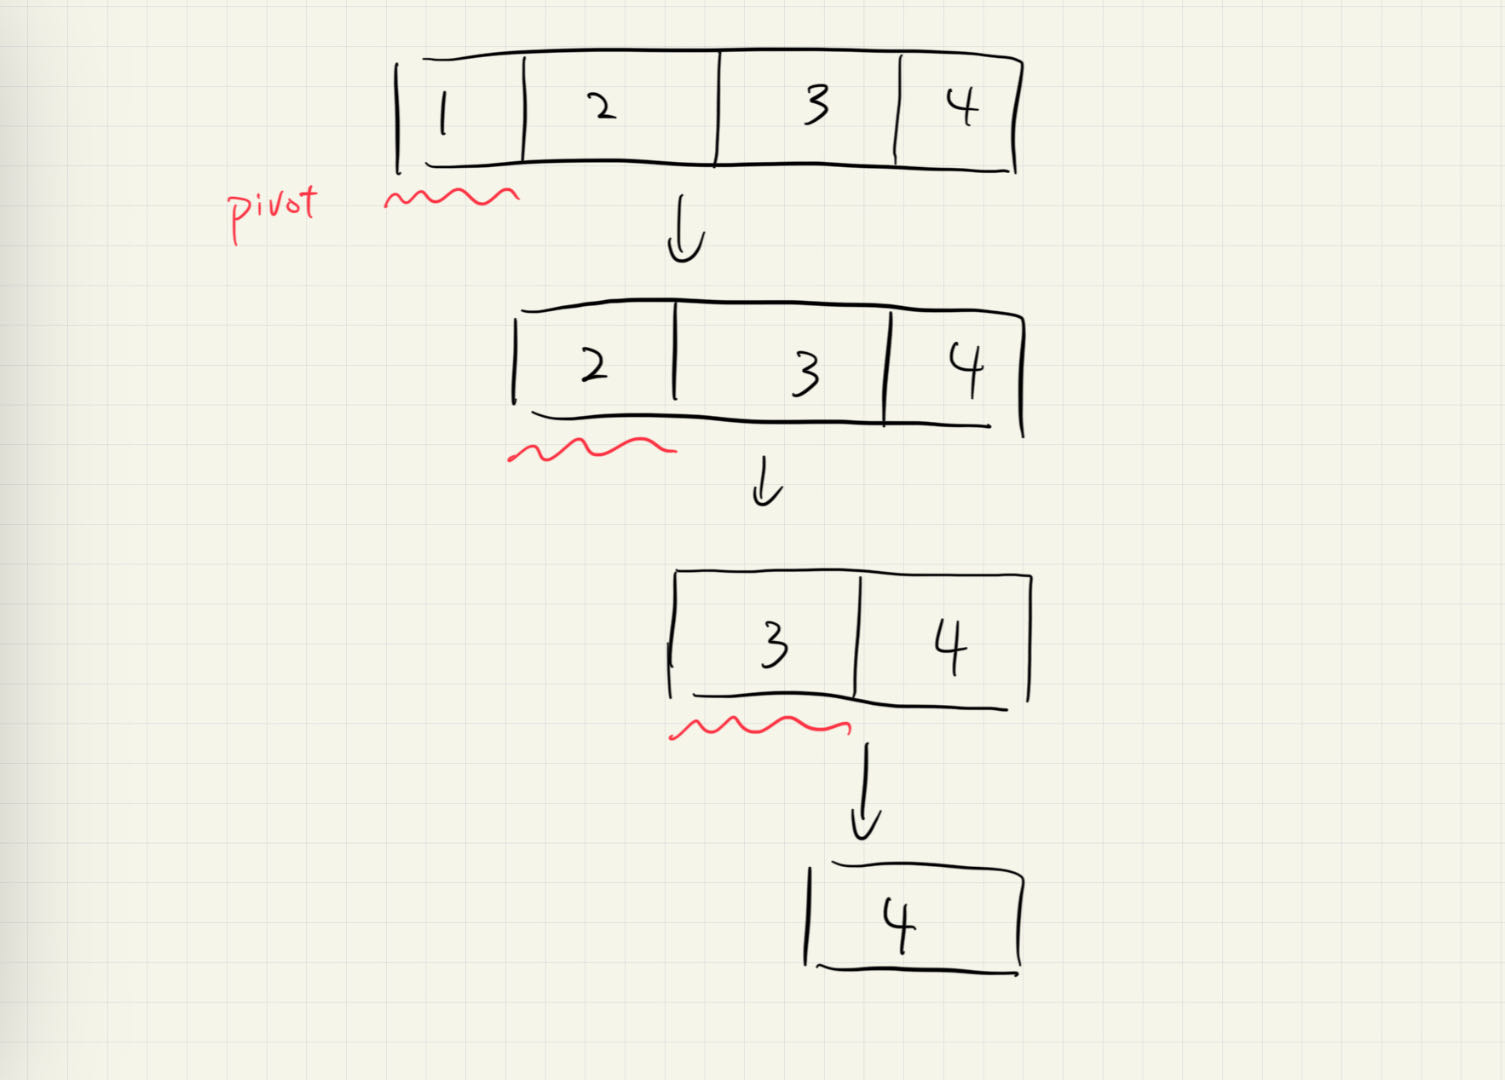 1 2 3 4
pivot
2 3 4
3 4
4